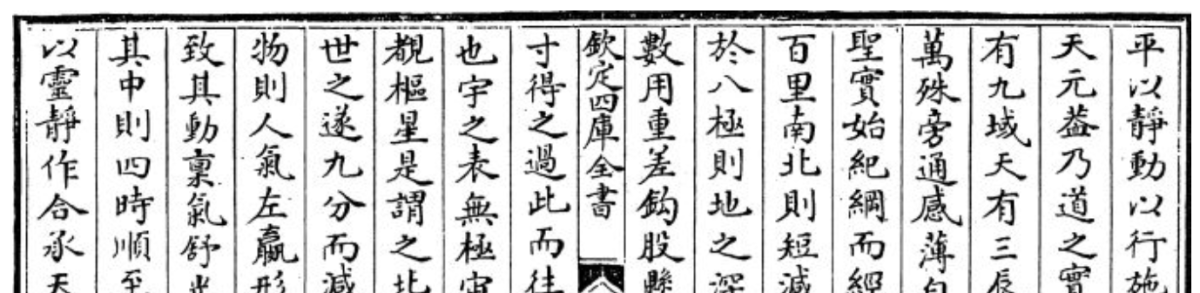 平以靜動以行施
天元葢乃道之實
有九域天有三辰
萬殊旁通感薄自
聖實始紀綱而經
百里南北則短減
於八極則地之深
數用重差鈎股懸
欽定四庫全書
寸得之過此而往
也宇之表無極宙
覩樞星是謂之北
世之遂九分而減
物則人氣左羸形
致其動稟氣舒光
其中則四時順至
以靈靜作合承天